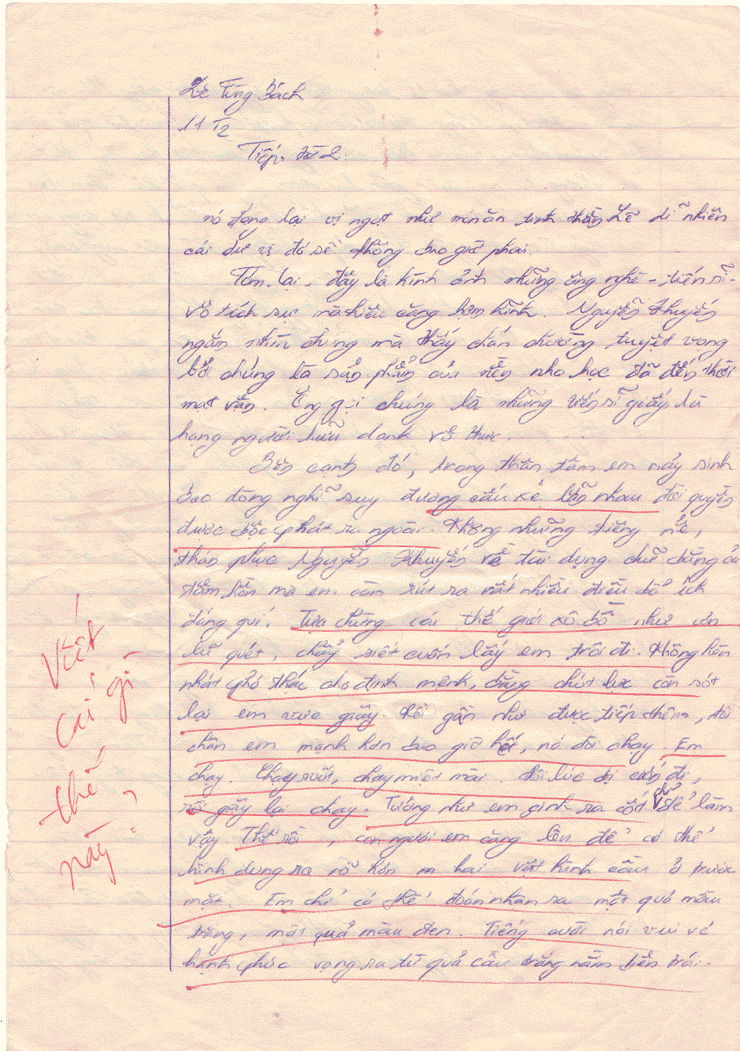 Lê Tùng Bách
11T2
Tiếp tờ 2.
nó đọng lại vị ngọt như món ăn tinh thần. Lẽ dĩ nhiên
cái dư vị đó sẽ không bao giờ phai.
Tóm lại, đây là hình ảnh những ông nghè - tiến sĩ -
vô tích sự mà kiêu căng hơm hĩnh. Nguyễn Khuyến
ngắm nhìn chúng mà thấy chán chường, tuyệt vọng
bởi chúng là sản phẩm của nền nho học đã đến thời
mạt vận. Ông gọi chúng là những tiến sĩ giấy là
hạng người hữu danh vô thực.
Bên cạnh đó, trong thân tâm em nảy sinh
bao dòng nghĩ suy đương cấu xé lẫn nhau đòi quyền
được bộc phát ra ngoài. Không những tiếng nể,
thán phục Nguyễn Khuyến về tài dụng chữ
mà em còn rút ra rất nhiều điều bổ ích
đáng quí. Tựa chừng cái thế giới xô bồ như cơn
lũ quét, chảy xiết cuốn lấy em trôi đi. Không hèn
nhát phó thác cho định mệnh, bằng chút lực còn sót
lại em vực giậy. Rồi gần như được tiếp thêm, đôi
chân em mạnh hơn bao giờ hết, nó đòi chạy. Em
chạy. Chạy suốt, chạy miệt mài. Đôi lúc bị cuốn đi,
rồi giậy lại chạy. Tưởng như em sinh ra cốt chỉ để làm
vậy. Thế rồi, con người em căng lên để có thể
hình dung ra rõ hơn hai vật hình cầu ở trước
mặt. Em chỉ có thể đoán nhận ra một quả màu
trắng, một quả màu đen. Tiếng cười nói vui vẻ
hạnh phúc vọng ra từ quả cầu trắng nằm bên trái.
Viết
cái gì
thế
này?